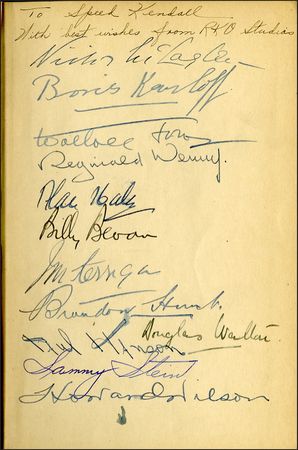 To Speed Kendall
With best wishes from RKO Studios
Victor McLaglen
Boris Karloff
Wallace Ford
Reginald Denny.
Alan Hale
Billy Bevan
Brandon Hurst.
Douglas Walton.
Paul Hanson
Sammy Stein
Howard Wilson